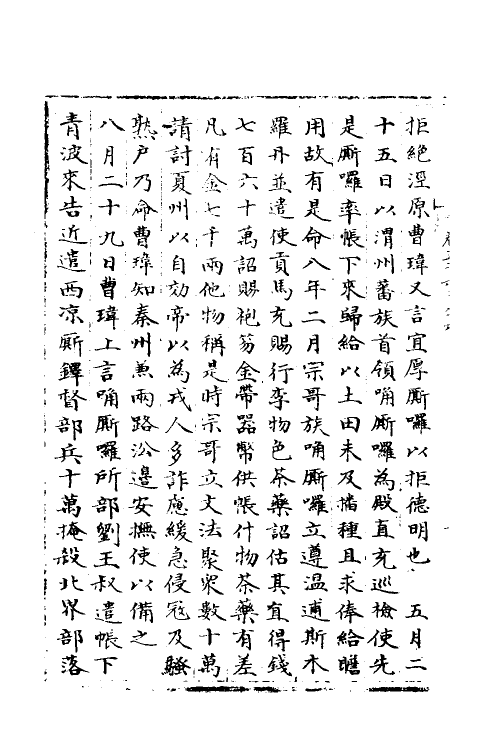 拒絶涇原曹瑋又言宜厚厮囉以拒德明也　五月二
十五日以渭州蕃族首領唃厮囉為殿直充巡檢使先
是厮囉率帳下來歸給以土田未及播種且求俸給贍
用故有是命八年二月宗哥族唃厮囉立遵温逋斯木
羅丹並遣使貢馬充賜行李物色茶藥詔估其直得錢
七百六十萬詔賜袍笏金帶器幣供帳什物茶藥有差
凡有金七千兩他物稱是時宗哥立文法聚衆數十萬
請討夏州以自効帝以為戎人多詐慮緩急侵寇及騷
熟户乃命曹瑋知秦州兼兩路㳂邉安撫使以備之
八月二十九日曹瑋上言唃厮囉所部劉王叔遣帳下
青波來告近遣西凉厮鐸督部兵十萬掩殺北界部落